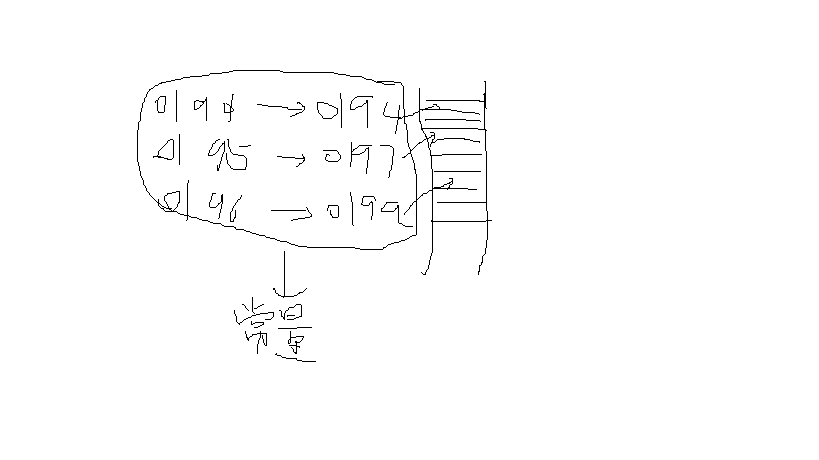 0194 → 0194
0195 → 0197
0196 → 0199
常量